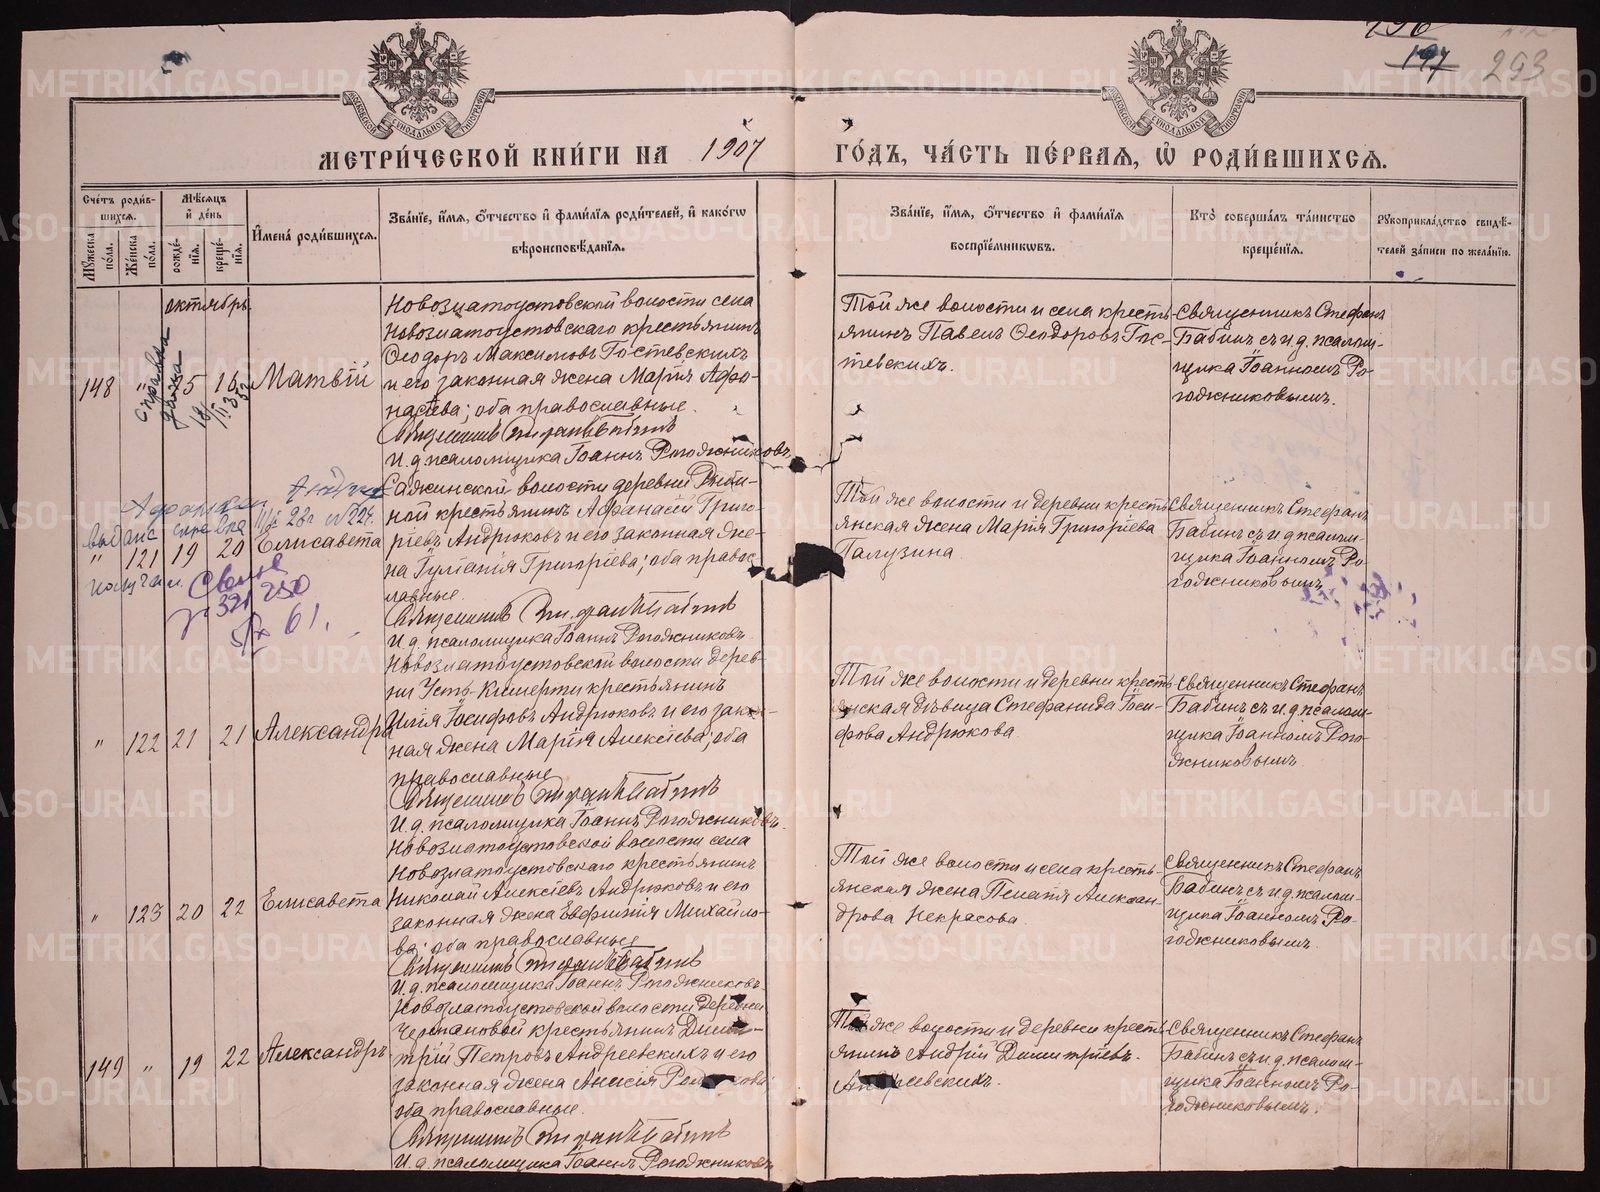 293
197
МОСКОВСКОЙ СѴНОДАЛЬНОЙ ТИПОГРАФІИ
МОСКОВСКОЙ СѴНОДАЛЬНОЙ ТИПОГРАФІИ
МЕТРИ́ЧЕСКОЙ КНИ́ГИ НА 1907 ГО́ДЪ, ЧА́СТЬ ПЕ́РВАЯ, Ѽ РОДИ́ВШИХСЯ.
Сче́тъ роди́в-
шихся.
Мꙋ́жеска по́ла.
Же́нска по́ла.
Мѣ́сяцъ и҆ де́нь
рожде́-
нїѧ.
креще́-
нїѧ.
И҆мена̀ роди́вшихся.
Зва́нїе, и҆́мя, о҆́тчество и҆ фами́лїя роди́телей, и҆ како́гѡ
вѣроисповѣ́данїя.
Зва́нїе, и҆́мя, о҆́тчество и҆ фами́лїя
воспрїе́мникѡвъ.
Кто̀ соверша́лъ та́инство
креще́нїя.
Рꙋкоприкла́дство свидѣ́-
телей за́писи по жела́нїю.
октябрь.
148 " 15 16 Матвій
справка
дана
Новозлатоустовской волости села
Новозлатоустовскаго крестьянинъ
Ѳеодоръ Максимовъ Гостевскихъ
и его законная жена Марія Афо-
насьева; оба православные.
Священникъ Стефанъ Бабинъ
И. д. псаломщика Іоаннъ Рогожниковъ
Той же волости и села кресть-
янинъ Павелъ Ѳеодоровъ Гос-
тевскихъ.
Священникъ Стефанъ
Бабинъ съ и. д. псалом-
щика Іоанномъ Ро-
гожниковымъ.
выдана справка
" 121 19 20 Елисавета
61.
Сажинской волости деревни Рыби-
ной крестьянинъ Афанасій Григо-
ріевъ Андрюковъ и его законная же-
на Гуліанія Григоріева; оба право-
славные.
Священникъ Стефанъ Бабинъ
И. д. псаломщика Іоаннъ Рогожниковъ.
Той же волости и деревни кресть-
янская жена Марія Григоріева
Галузина.
Священникъ Стефанъ
Бабинъ съ и. д. псалом-
щика Іоанномъ Ро-
гожниковымъ.
" 122 21 21 Александра
Новозлатоустовской волости дерев-
ни Усть-Кишерти крестьянинъ
Илія Іосифовъ Андрюковъ и его закон-
ная жена Марія Алексіева; оба
православные
Священникъ Стефанъ Бабинъ
И. д. псаломщика Іоаннъ Рогожниковъ.
Той же волости и деревни кресть-
янская дѣвица Стефанида Іоси-
фова Андрюкова
Священникъ Стефанъ
Бабинъ съ и. д. псалом-
щика Іоанномъ Рого-
жниковымъ.
" 123 20 22 Елисавета
Новозлатоустовской волости села
Новозлатоустовскаго крестьянинъ
Николай Алексіевъ Андрюковъ и его
законная жена Евфимія Михайло-
ва; оба православные
Священникъ Стефанъ Бабинъ
И. д. псаломщика Іоаннъ Рогожниковъ.
Той же волости и села кресть-
янская жена Пелагія Алексан-
дрова Некрасова.
Священникъ Стефанъ
Бабинъ съ и. д. псалом-
щика Іоанномъ Ро-
гожниковымъ.
149 " 19 22 Александръ
Новозлатоустовской волости деревни
крестьянинъ Дими-
трій Петровъ Андреевскихъ и его
законная жена Анисія
оба православные.
Священникъ Стефанъ Бабинъ
И. д. псаломщика Іоаннъ Рогожниковъ
Той же волости и деревни кресть-
янинъ Андрій Димитріевъ.
Андреевскихъ.
Священникъ Стефанъ
Бабинъ съ и. д. псалом-
щика Іоанномъ Ро-
гожниковымъ.
METRIKI.GASO-URAL.RU